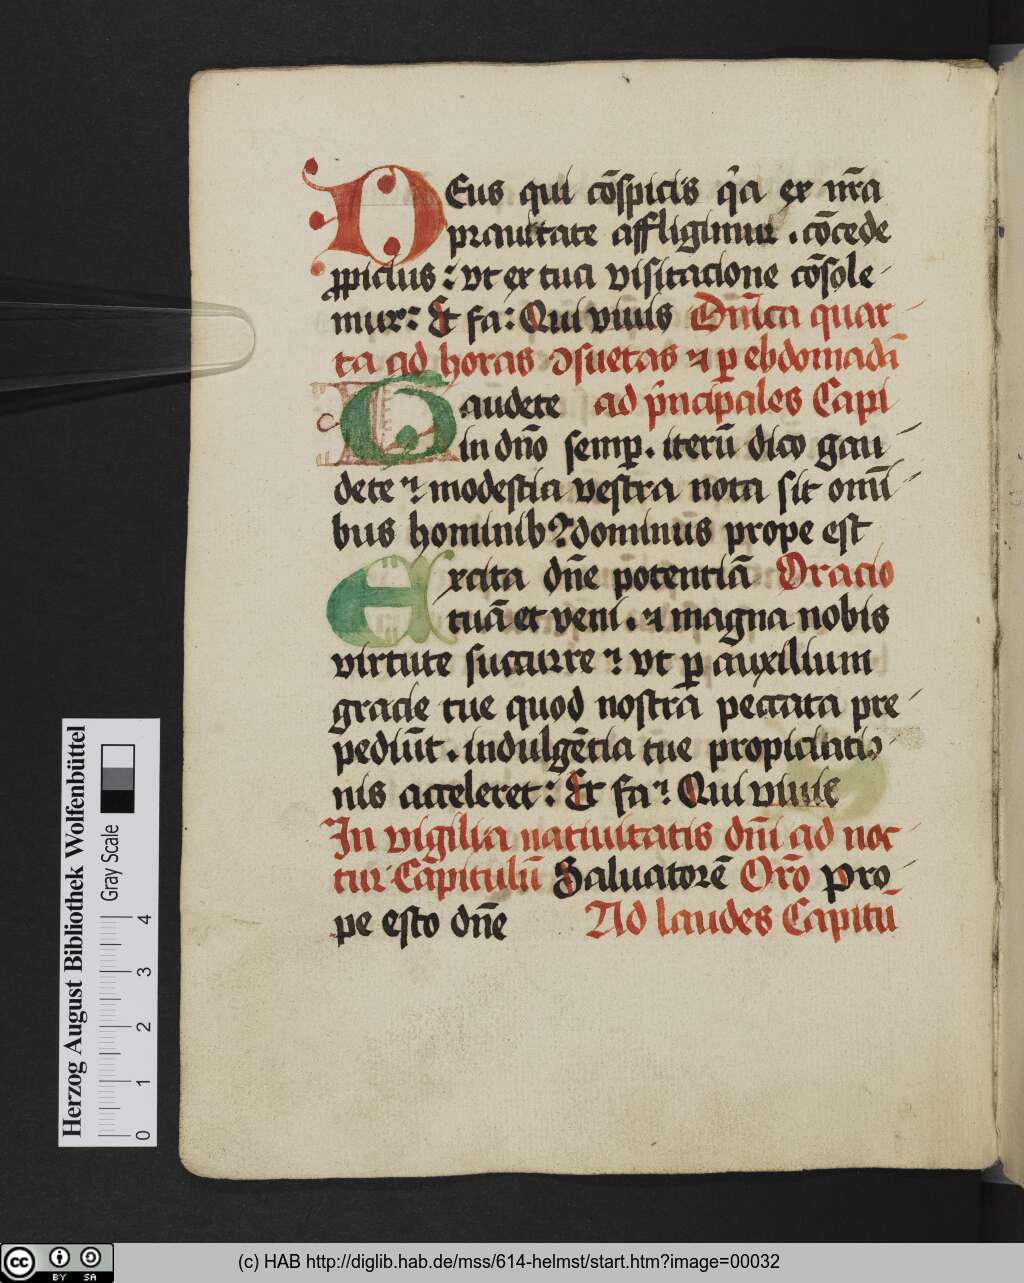 DEus qui cōspicis q̇a ex nr̄a
prauitate affligimur . cōcede
ꝓpicius : vt ex tua visitacione cōsole-
mur : Et fa : Qui viuis Dn̄ica quar-
ta ad horas ↄsuetas ⁊ ꝑ ebdomadā
Gaudete ad p̄ncipales Capi
in dn̄o semꝑ . iterū dico gau-
dete ⁊ modestia vestra nota sit om̄i-
bus hominibꝰ dominus prope est
Excita dn̄e potentiā Oracio
tuā et veni . ⁊ magna nobis
virtute succurre ⁊ vt ꝑ auxilium
gracie tue quod nostra peccata pre-
pediūt . indulgētia tue propiciatio-
nis acceleret : Et fa Qui viuis
In vigilia natiuitatis dn̄i ad noc-
tur Capitulū Saluatorē Orō Pro-
pe esto dn̄e Ad laudes Capitū
Herzog August Bibliothek Wolfenbüttel
Gray Scale
0 1 2 3 4
(c) HAB http://diglib.hab.de/mss/614-helmst/start.htm?image=00032
cc BY SA